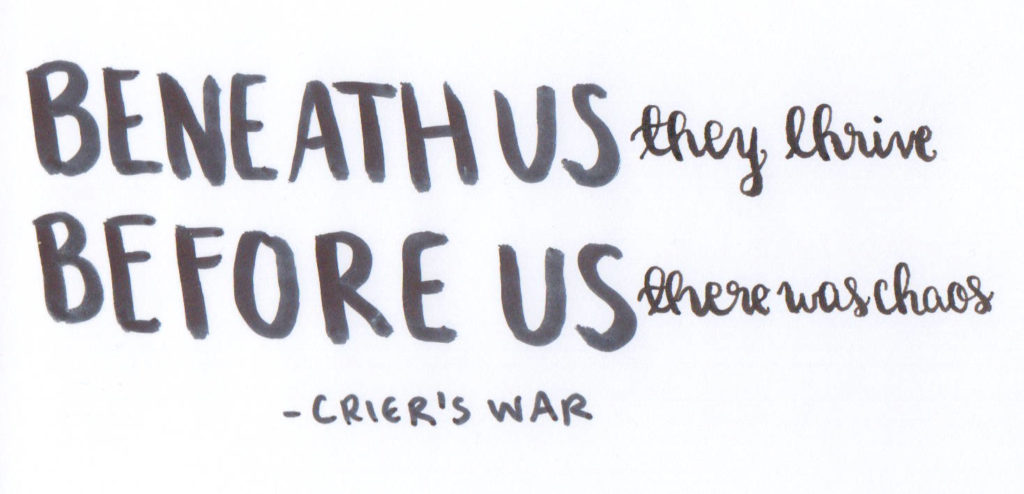 BENEATH US they thrive
BEFORE US there was chaos
-CRIER'S WAR